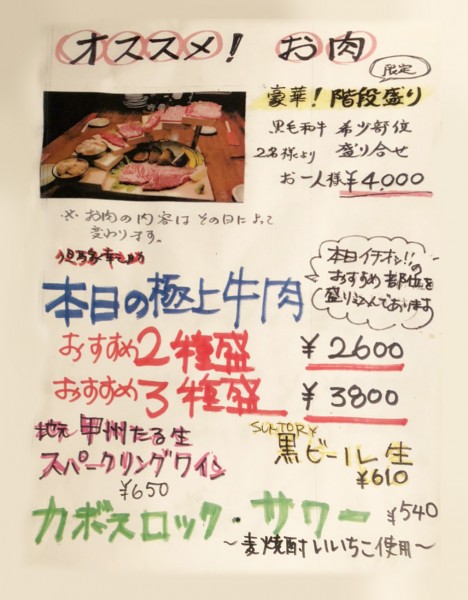 オススメ! お肉
限定
豪華!階段盛り
黒毛和牛 希少部位
2名様より 盛り合せ
お一人様 ¥4,000
※ お肉の内容はその日によって
変わります。
本日の極上牛肉
本日イチオシ!!の
おすすめ部位を
盛り込んでおります
おすすめ2種盛 ¥2600
おすすめ3種盛 ¥3800
地元 甲州たる生
スパークリングワイン
¥650
SUNTORY
黒ビール生
¥610
カボスロック・サワー ¥540
〜麦焼酎いいちこ使用〜